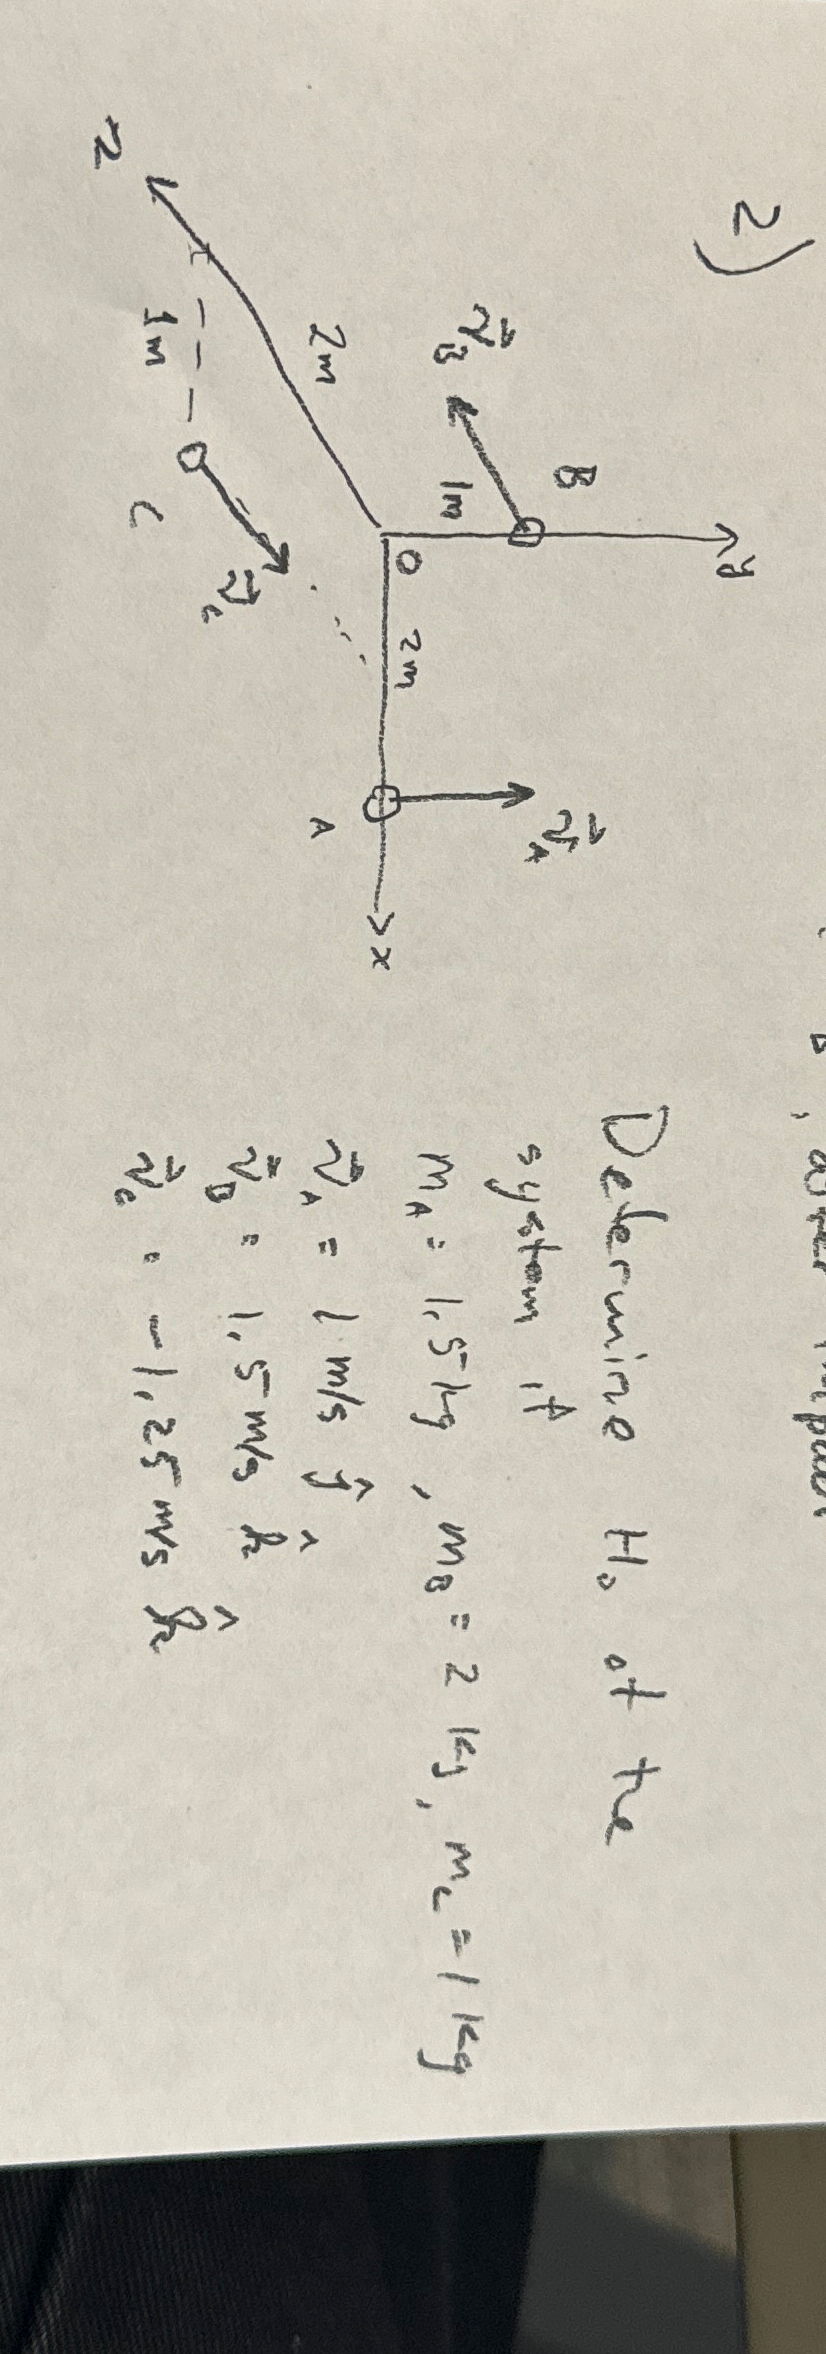 2)
y
B
v⃗_B
1m
O
2m
A
x
v⃗_A
2m
z
1m
C
v⃗_C
Determine H₀ of the
system if
m_A = 1.5 kg, m_B = 2 kg, m_C = 1 kg
v⃗_A = 1 m/s ĵ
v⃗_B = 1.5 m/s k̂
v⃗_C = -1.25 m/s k̂